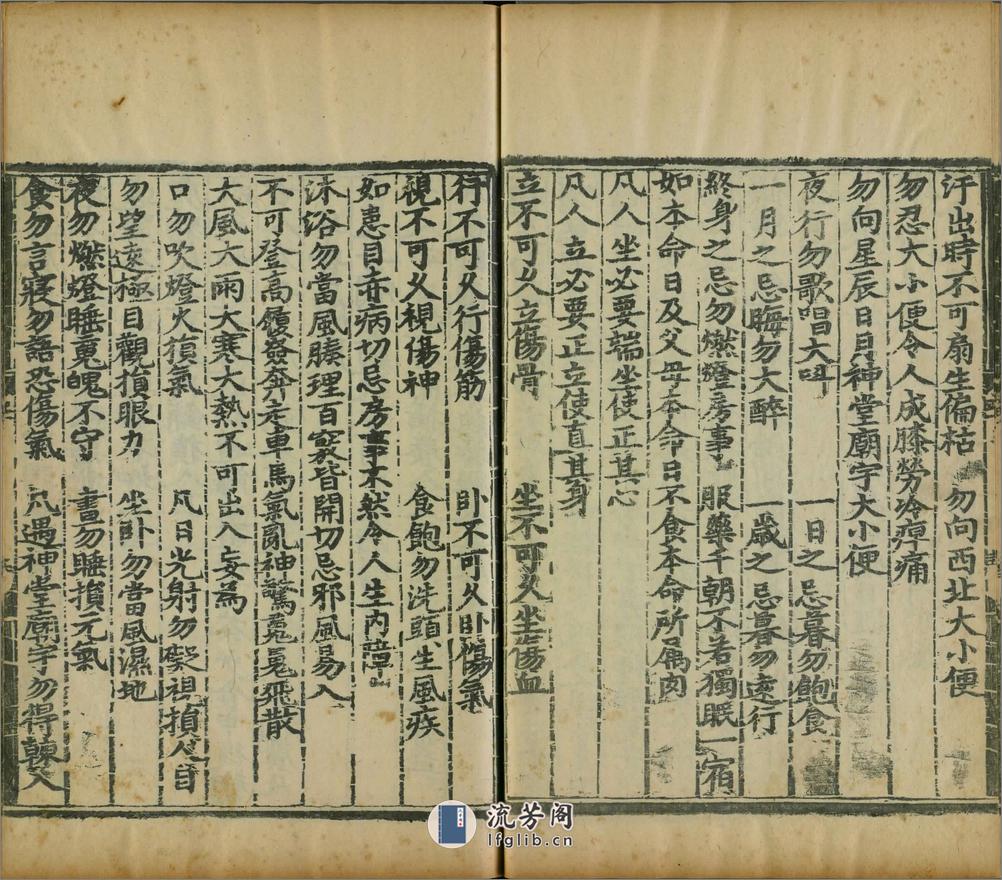 汗出時不可扇生偏枯 勿向西北大小便
勿忍大小便令人成膝勞冷痹痛
勿向星辰日月神堂廟宇大小便
夜行勿歌唱大呌 一日之忌暮勿飽食
一月之忌晦勿大醉 一歲之忌暮勿遠行
終身之忌勿燃燈房事 服藥千朝不若獨眠一宿
如本命日及父母本命日不食本命所属肉
凡人坐必要端坐使正其心
凡人立必要正立使直其身
立不可久立傷骨 坐不可久坐傷血
行不可久行傷筋 卧不可久卧傷氣
視不可久視傷神 食飽勿洗頭生風疾
如患目赤病切忌房事不然令人生内障
沐浴勿當風腠理百竅皆開切忌邪風易入
不可登高履嶮奔走車馬氣亂神驚魂魄飛散
大風大雨大寒大熱不可出入妄爲
口勿吹燈火損氣 凡日光射勿凝視損人目
勿望遠極目觀損眼力 坐卧勿當風濕地
夜勿燃燈睡魂魄不守 晝勿睡損元氣
食勿言寢勿語恐傷氣 凡遇神堂廟宇勿得輙入
流芳阁
lfglib.cn